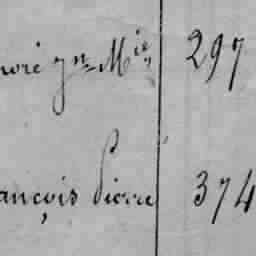 noré jn Mie 297
ançois Pierre 374